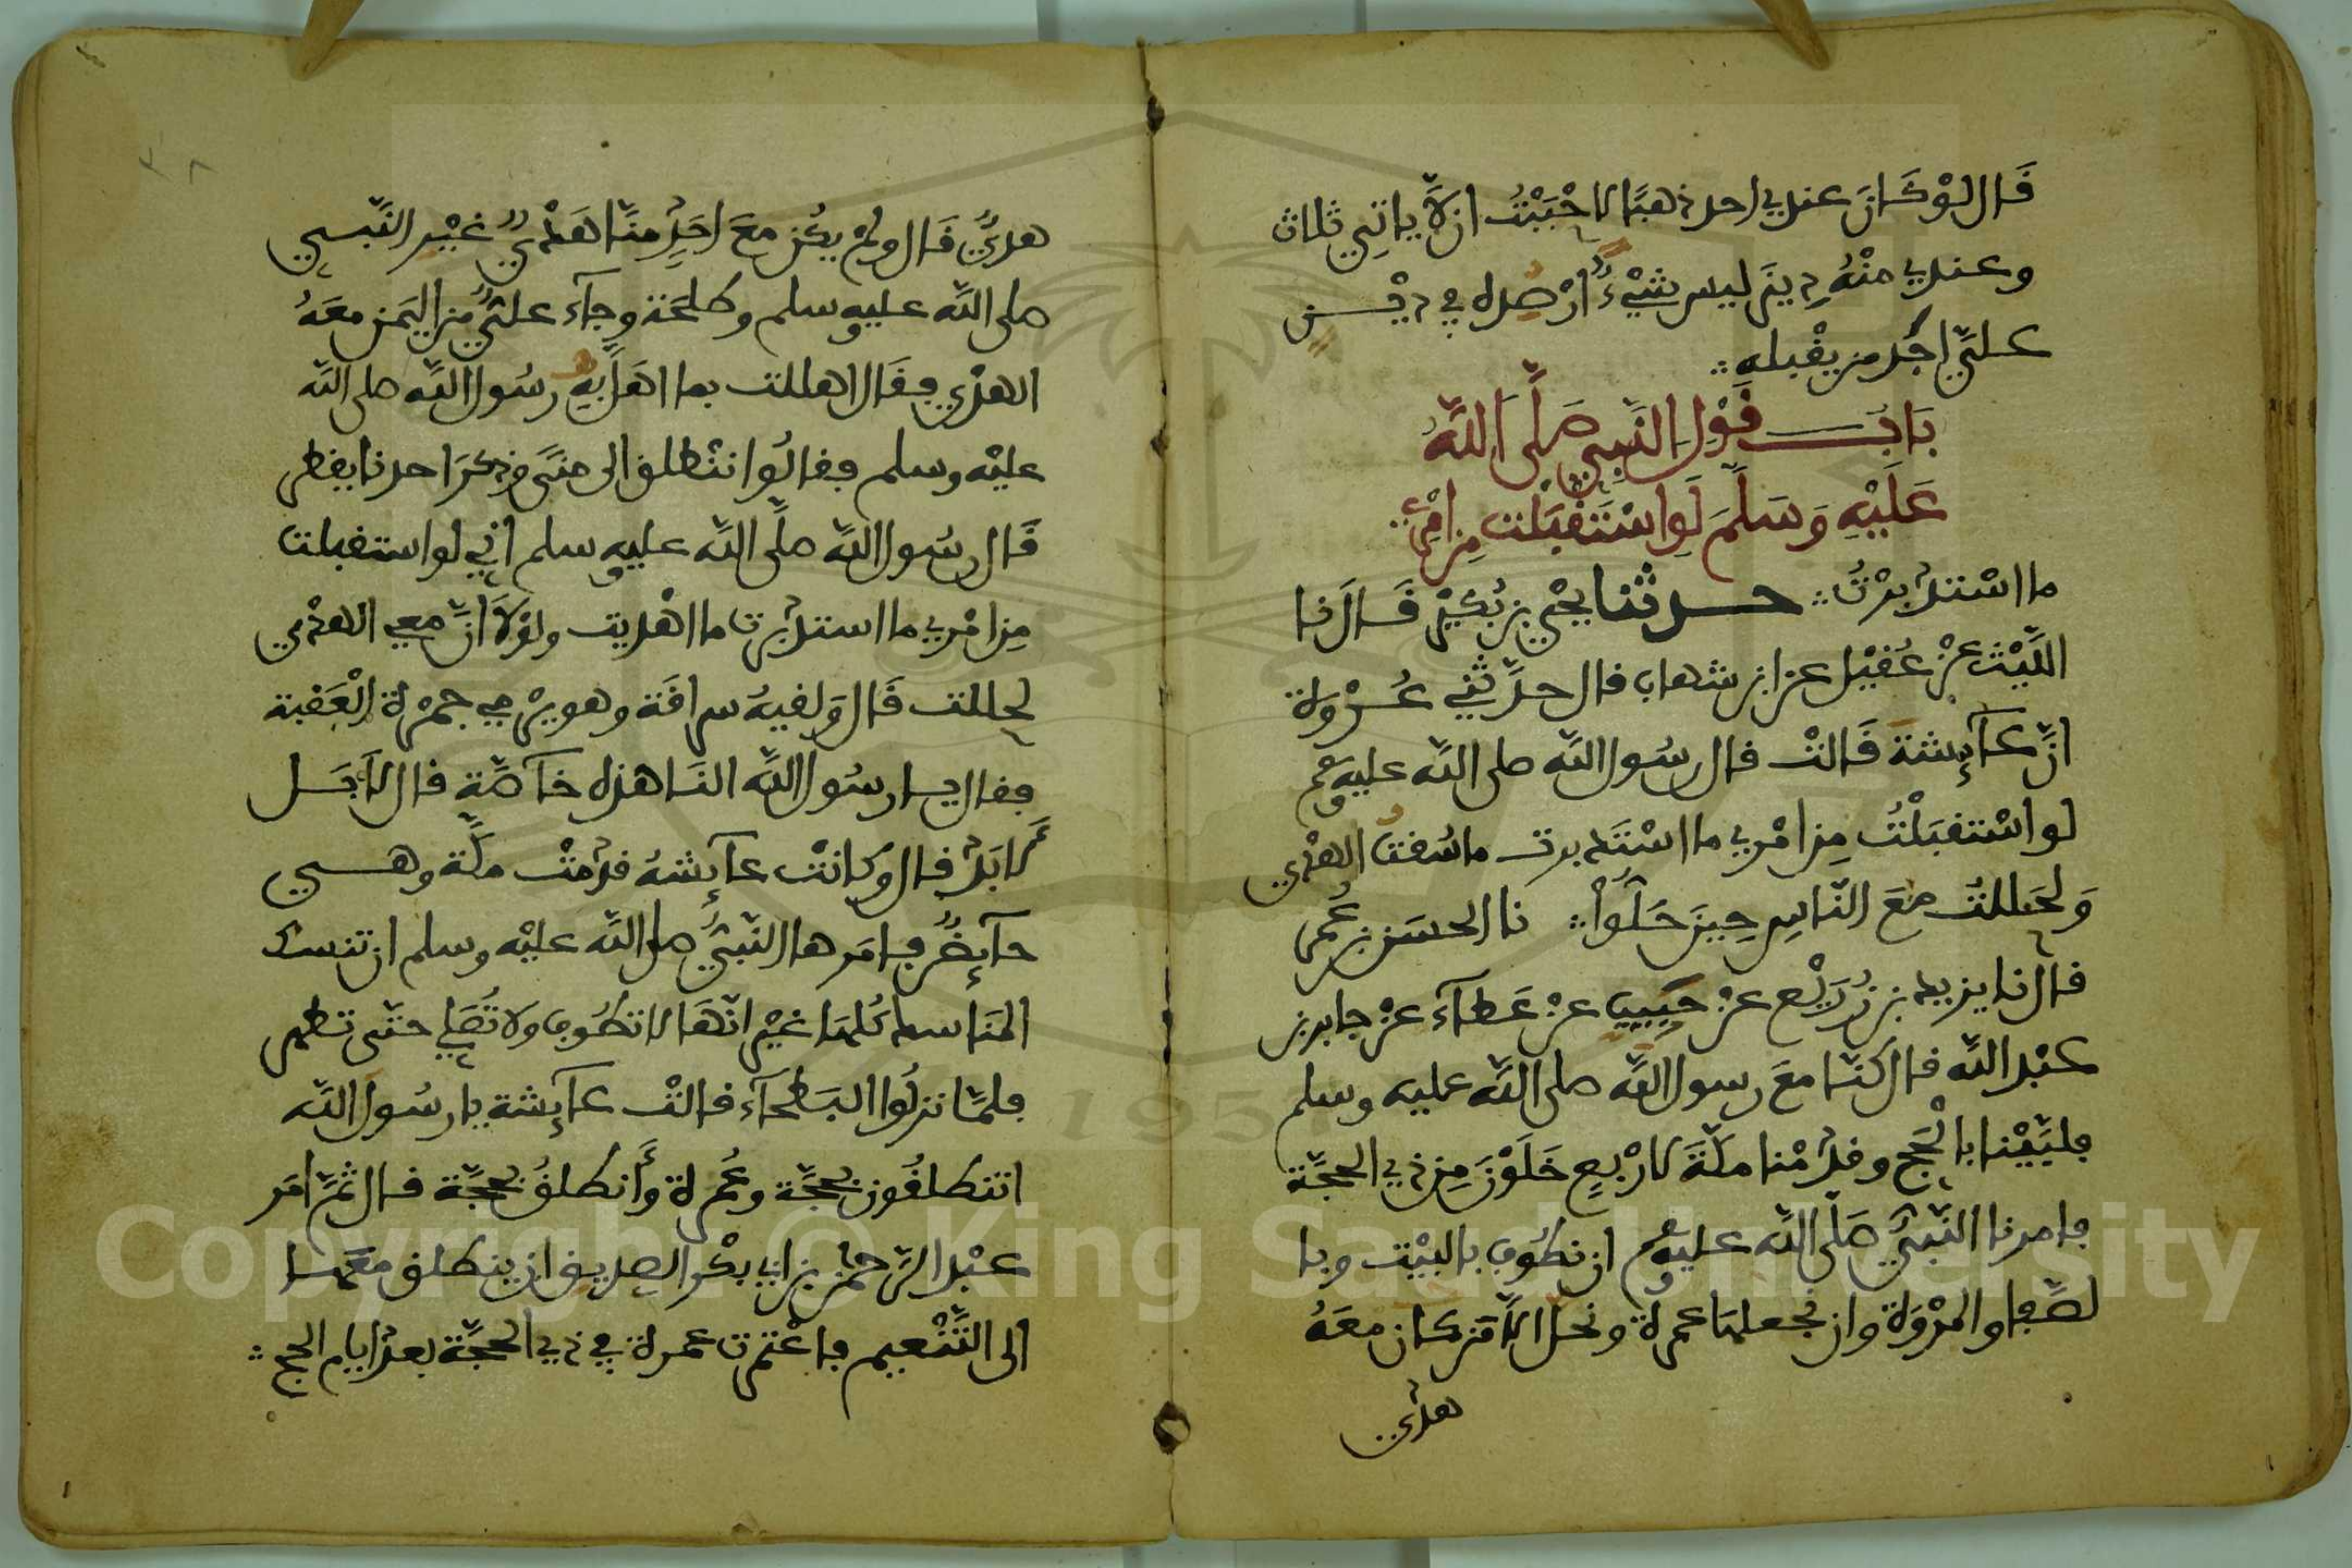 قَال لوْ كَانَ عندي احد ذهبًا لاحْبَبْتُ ان لَّا ياتِي ثلاث
وعندي منْهُ دِينَر ليس شيْءٌ ارْصُده في دَيْن
علَيَّ اجُد من يقْبله
بَابُ قَوْلِ النَّبِيِّ صَلَّى اَللَّهُ
عَلَيْهِ وَسَلَّمَ لَوِ اسْتَقْبَلْت مِن امْرِي
ما اسْتدْبرْتُ حدثنا يحْيَ بن بُكَيْر قَال نا
اللَّيْث عنْ عُقيْل عن ابن شهاب قال حدَّثني عُرْوَة
انَّ عَآئِشة قَالتْ قال رسُول اللَّه صلى اللَّه عليه وسلم
لو اسْتقبَلْتُ مِن امْري ما اسْتَدبرت ما سُقتُ الهدْي
وَلحَللتُ معَ النَّاسِ حِينَ حَلُّواْ نا الحسَن بن عُمر
قال نا يزيد بن زُرَيْع عنْ حَبِيب عنْ عَطآء عنْ جابر بن
عبْد اللَّه قال كنَّا معَ رسول اللَّه صلى اللَّه عليه وسلم
فلبَّيْنا بالْحَجِّ وقدمْنا مكَّةَ لارْبعٍ خَلَوْنَ مِن ذي الحجَّة
فامرنا النَّبيُّ صَلَّى اللَّه عليه وسلم ان نطُوف بالبيْت وبا
لصَّفا والمرْوَة وان نجعلهَا عمرة ونحلّ الَّا مَن كان معَهُ
هدْي
هديٌ قَال ولمْ يكُن معَ احَدٍ منَّا هَدْيٌ غيْر النَّبي
صلى اللَّه عليه وسلم وطلحَة وجآء عليٌّ من اليَمن معَهُ
الهدْي فقَال اهللت بما اهَلَّ بِهِ رسُول اللَّه صلى اللَّه
عليْه وسلم فقالُوا ننْطلق الى منًى وذكرَ احدنا يقطر
قَال رسُول اللَّه صلَّى اللَّه عليه وسلم اني لو استقبلت
مِن امْري ما استدْبرت ما اهْديت ولوْلَا انَّ معي الهدْي
لحللت قَال وَلقيهُ سراقَة وهو يرْمي جمْرة الْعَقبة
فقال يا رسُول اللَّه النَا هذه خآصَّة قال لَا بَل
لَابَدٍ قال وكانتْ عآئِشهُ قدمَتْ مكَّة وهي
حآئِضٌ فامَرها النَّبيُّ صلى اللَّه عليْه وسلم ان تنسك
المنَاسك كُلهَا غيْر انَّهَا لا تطُوف ولا تُصَلي حتَّى تطهر
فلمَّا نزلُوا البَطحآء قالتْ عآئِشة يا رسُول اللَّه
اتنطلقُون بحجَّة وعُمرة وأنطلقُ بحجَّة قال ثمَّ امَر
عبْد الرَّحمن بن ابي بكْر الصديق ان ينطلق معَهَا
الى التَّنْعيم فاعْتمرت عمرة في ذي الحجَّة بعدَ ايام الحج